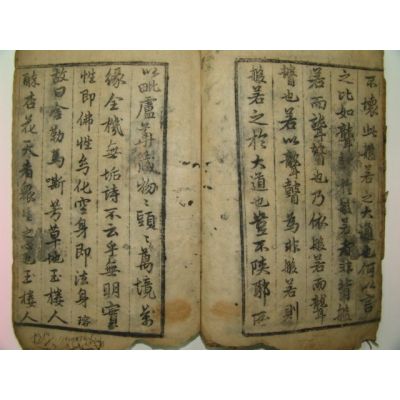 不壞此般若之大道也何以言
之比如聾瞽非般若者非背般
若而聾瞽也乃依般若而聾
瞽也若以聾瞽為非般若則
般若之於大道也豈不陜耶
以毗盧華藏物〻頭〻萬境萬
緣全機無垢詩不云乎無明實
性即佛性幻化空身即法身
故曰金勒馬嘶芳草地玉樓人
醉杏花天者之也玉樓人